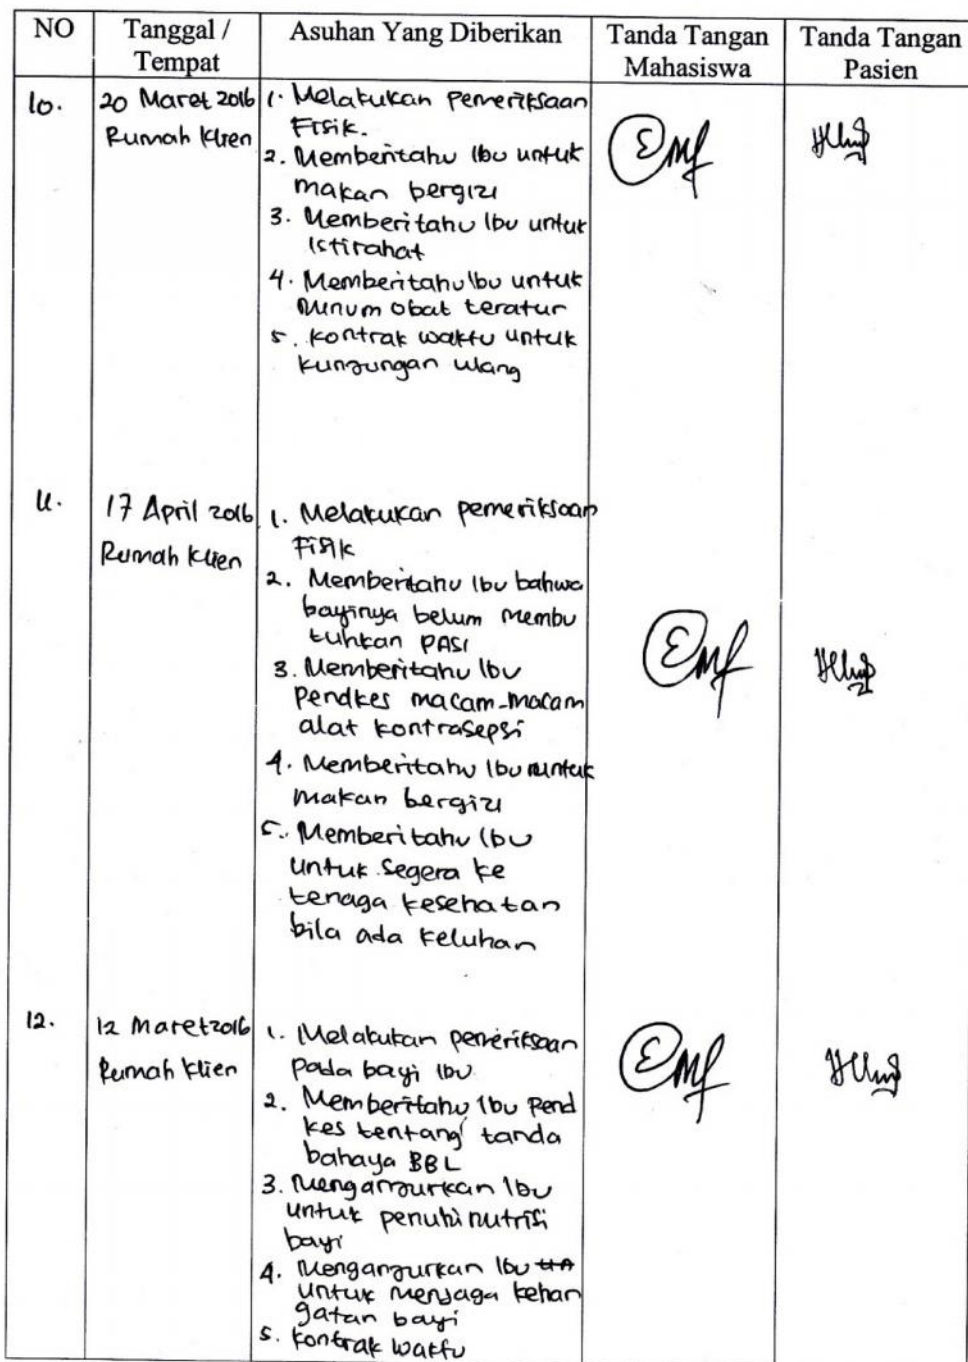 NO Tanggal / Tempat Asuhan Yang Diberikan Tanda Tangan Mahasiswa Tanda Tangan Pasien
10. 20 Maret 2016 1. Melakukan pemeriksaan
Rumah Klien Fisik.
2. Memberitahu Ibu untuk
makan bergizi
3. Memberitahu Ibu untuk
istirahat
4. Memberitahu Ibu untuk
minum obat teratur
5. Kontrak waktu untuk
kunjungan ulang
11. 17 April 2016 1. Melakukan pemeriksaan
Rumah Klien Fisik
2. Memberitahu Ibu bahwa
bayinya belum membu
tuhkan PASI
3. Memberitahu Ibu
Pendkes macam-macam
alat kontrasepsi
4. Memberitahu Ibu untuk
makan bergizi
5. Memberitahu Ibu
untuk segera ke
tenaga kesehatan
bila ada keluhan
12. 12 Maret 2016 1. Melakukan pemeriksaan
Rumah Klien pada bayi Ibu
2. Memberitahu Ibu Pend
kes tentang tanda
bahaya BBL
3. Menganjurkan Ibu
untuk penuhi nutrisi
bayi
4. Menganjurkan Ibu
untuk menjaga kehan
gatan bayi
5. Kontrak waktu